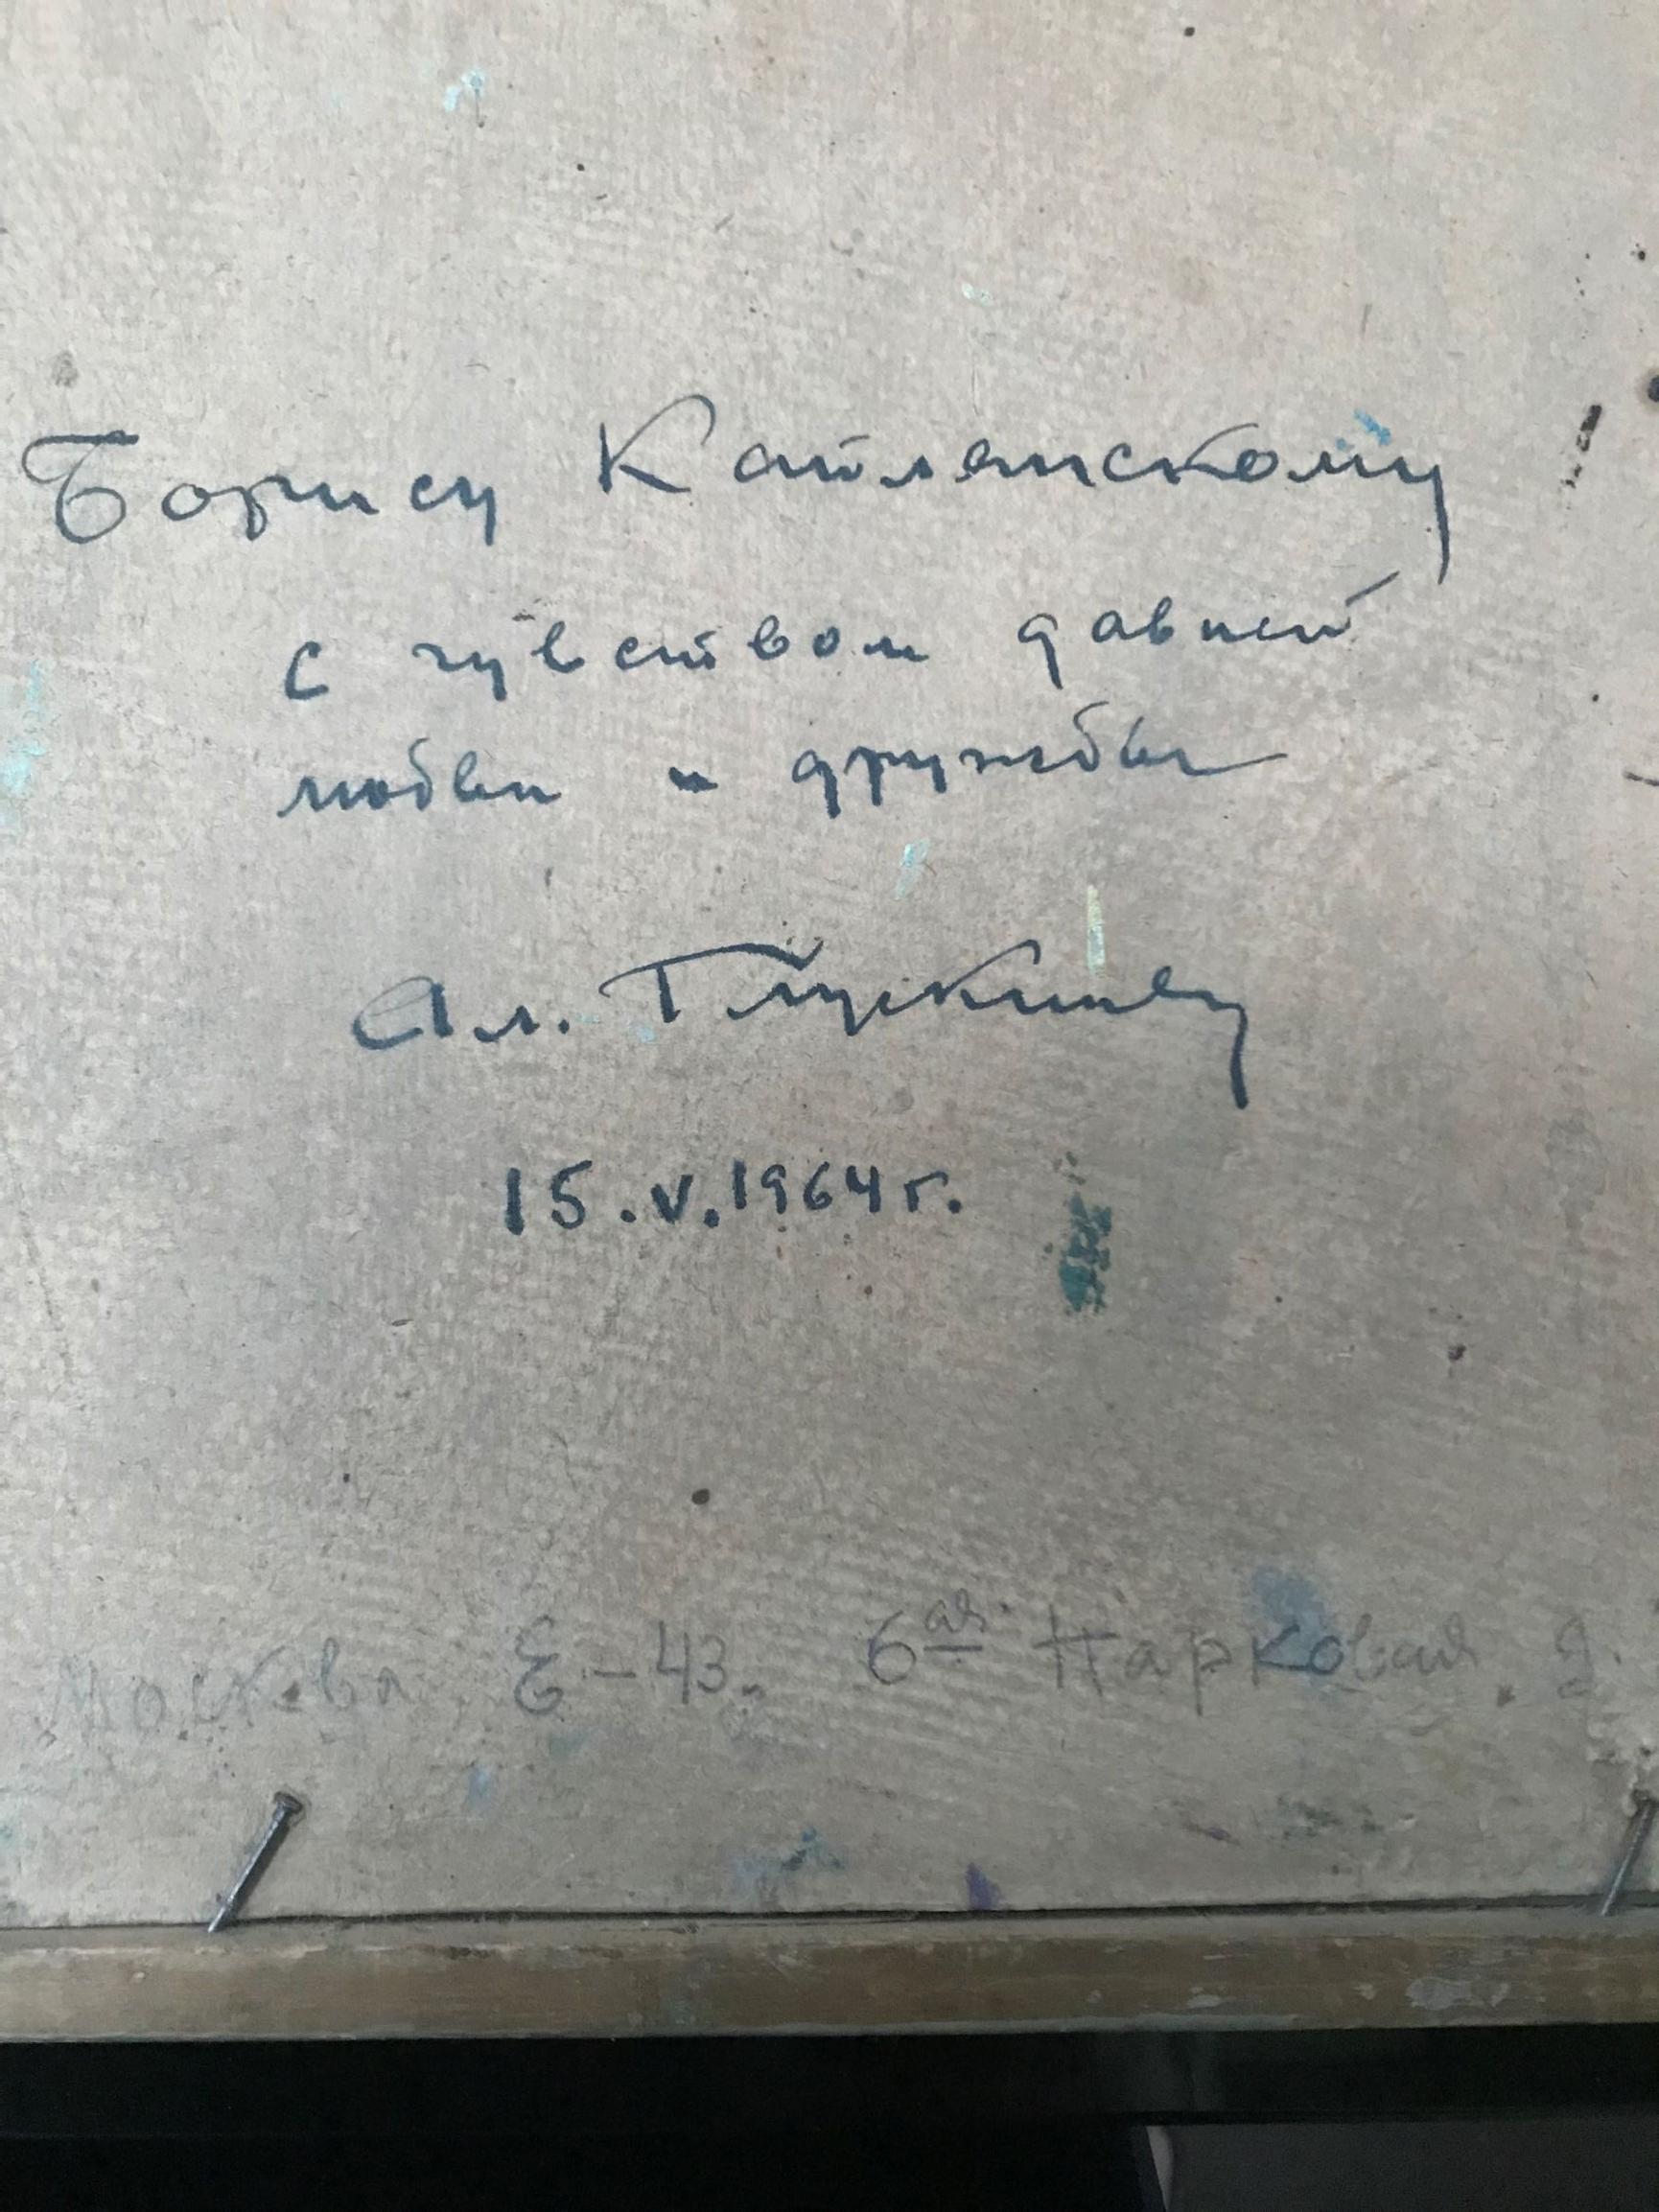 Борису Катлянскому
с чувством давней
любви и дружбы
Ал. Глускину
15.V.1964 г.
Москва, Е-43. 6ая Парковая д.